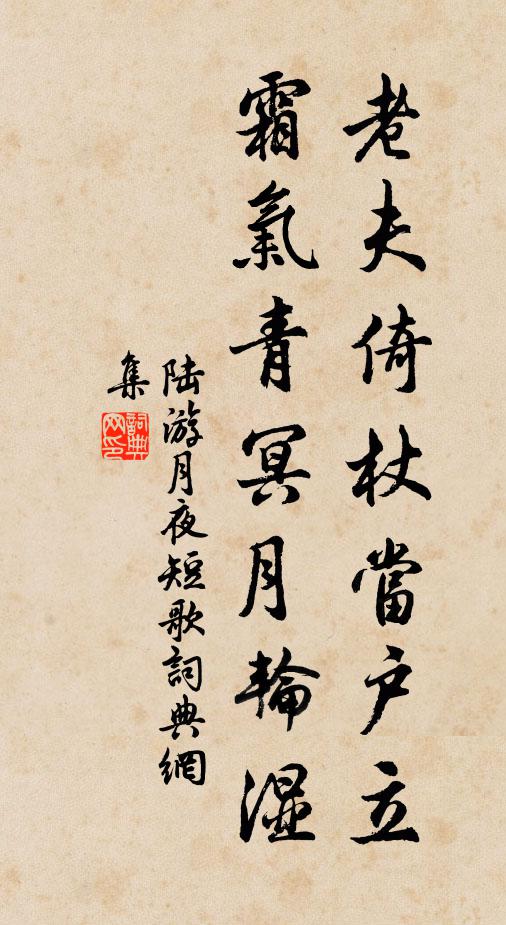 老夫倚杖當户立
霜氣青冥月輪濕
陆游月夜短歌詞典網
集
詞典
网印